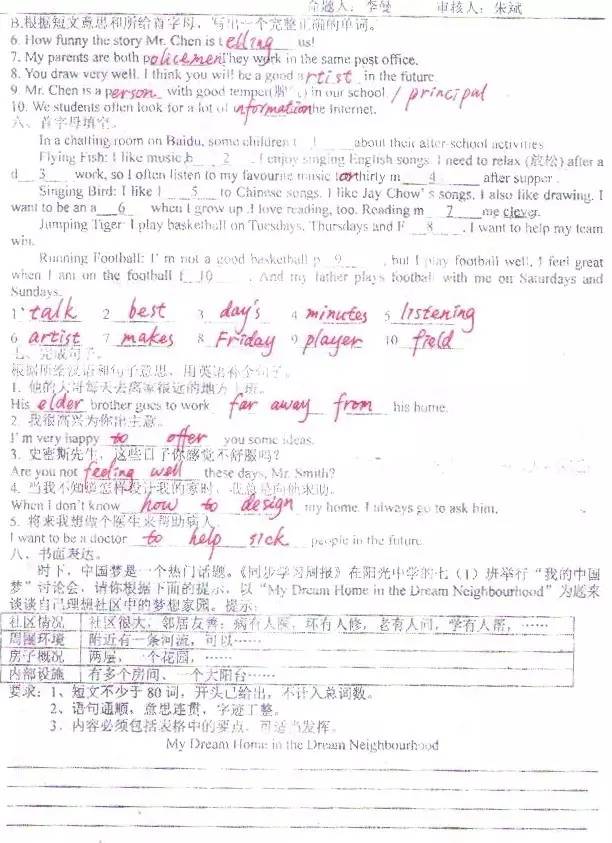 命题人：李曼 审核人：朱斌
B.根据短文意思和所给首字母，写出一个完整正确的单词。
6. How funny the story Mr. Chen is telling us!
7. My parents are both policemen They work in the same post office.
8. You draw very well. I think you will be a good artist in the future.
9. Mr. Chen is a person with good temper( ) in our school. / principal
10. We students often look for a lot of information the Internet.
六、首字母填空。
In a chatting room on Baidu, some children t 1 about their after-school activities
Flying Fish: I like music,b 2 . I enjoy singing English songs. I need to relax (放松) after a
d 3 work, so I often listen to my favourite music for thirty m 4 after supper .
Singing Bird: I like l 5 to Chinese songs. I like Jay Chow's songs. I also like drawing. I
want to be an a 6 when I grow up .I love reading, too. Reading m 7 me clever.
Jumping Tiger: I play basketball on Tuesdays, Thursdays and F 8 . I want to help my team
win.
Running Football: I'm not a good basketball p 9 , but I play football well. I feel great
when I am on the football f 10 . And my father plays football with me on Saturdays and
Sundays.
1 talk 2 best 3 day's 4 minutes 5 listening
6 artist 7 makes 8 Friday 9 player 10 field
七、完成句子。
根据所给汉语和句子意思，用英语补全句子。
1. 他的大哥每天去离家很远的地方上班。
His elder brother goes to work far away from his home.
2. 我很高兴为你出主意。
I'm very happy to offer you some ideas.
3. 史密斯先生，这些日子你感觉不舒服吗？
Are you not feeling well these days, Mr. Smith?
4. 当我不知道怎样设计我的家时，我总是向他求助。
When I don't know how to design my home. I always go to ask him.
5. 将来我想做个医生来帮助病人
I want to be a doctor to help sick people in the future.
八、书面表达。
时下，中国梦是一个热门话题。《同步学习周报》在阳光中学的七（1）班举行“我的中国
梦”讨论会，请你根据下面的提示，以“My Dream Home in the Dream Neighbourhood”为题来
谈谈自己理想社区中的梦想家园。提示：
社区情况 社区很大，邻居友善；病有人医，坏有人修，老有人问，学有人帮，……
周围环境 附近有一条河流，可以……
房子概况 两层，一个花园，……
内部设施 有多个房间、一个大阳台……
要求：1、短文不少于 80 词，开头已给出，不计入总词数。
2、语句通顺，意思连贯，字迹工整。
3、内容必须包括表格中的要点，可适当发挥。
My Dream Home in the Dream Neighbourhood